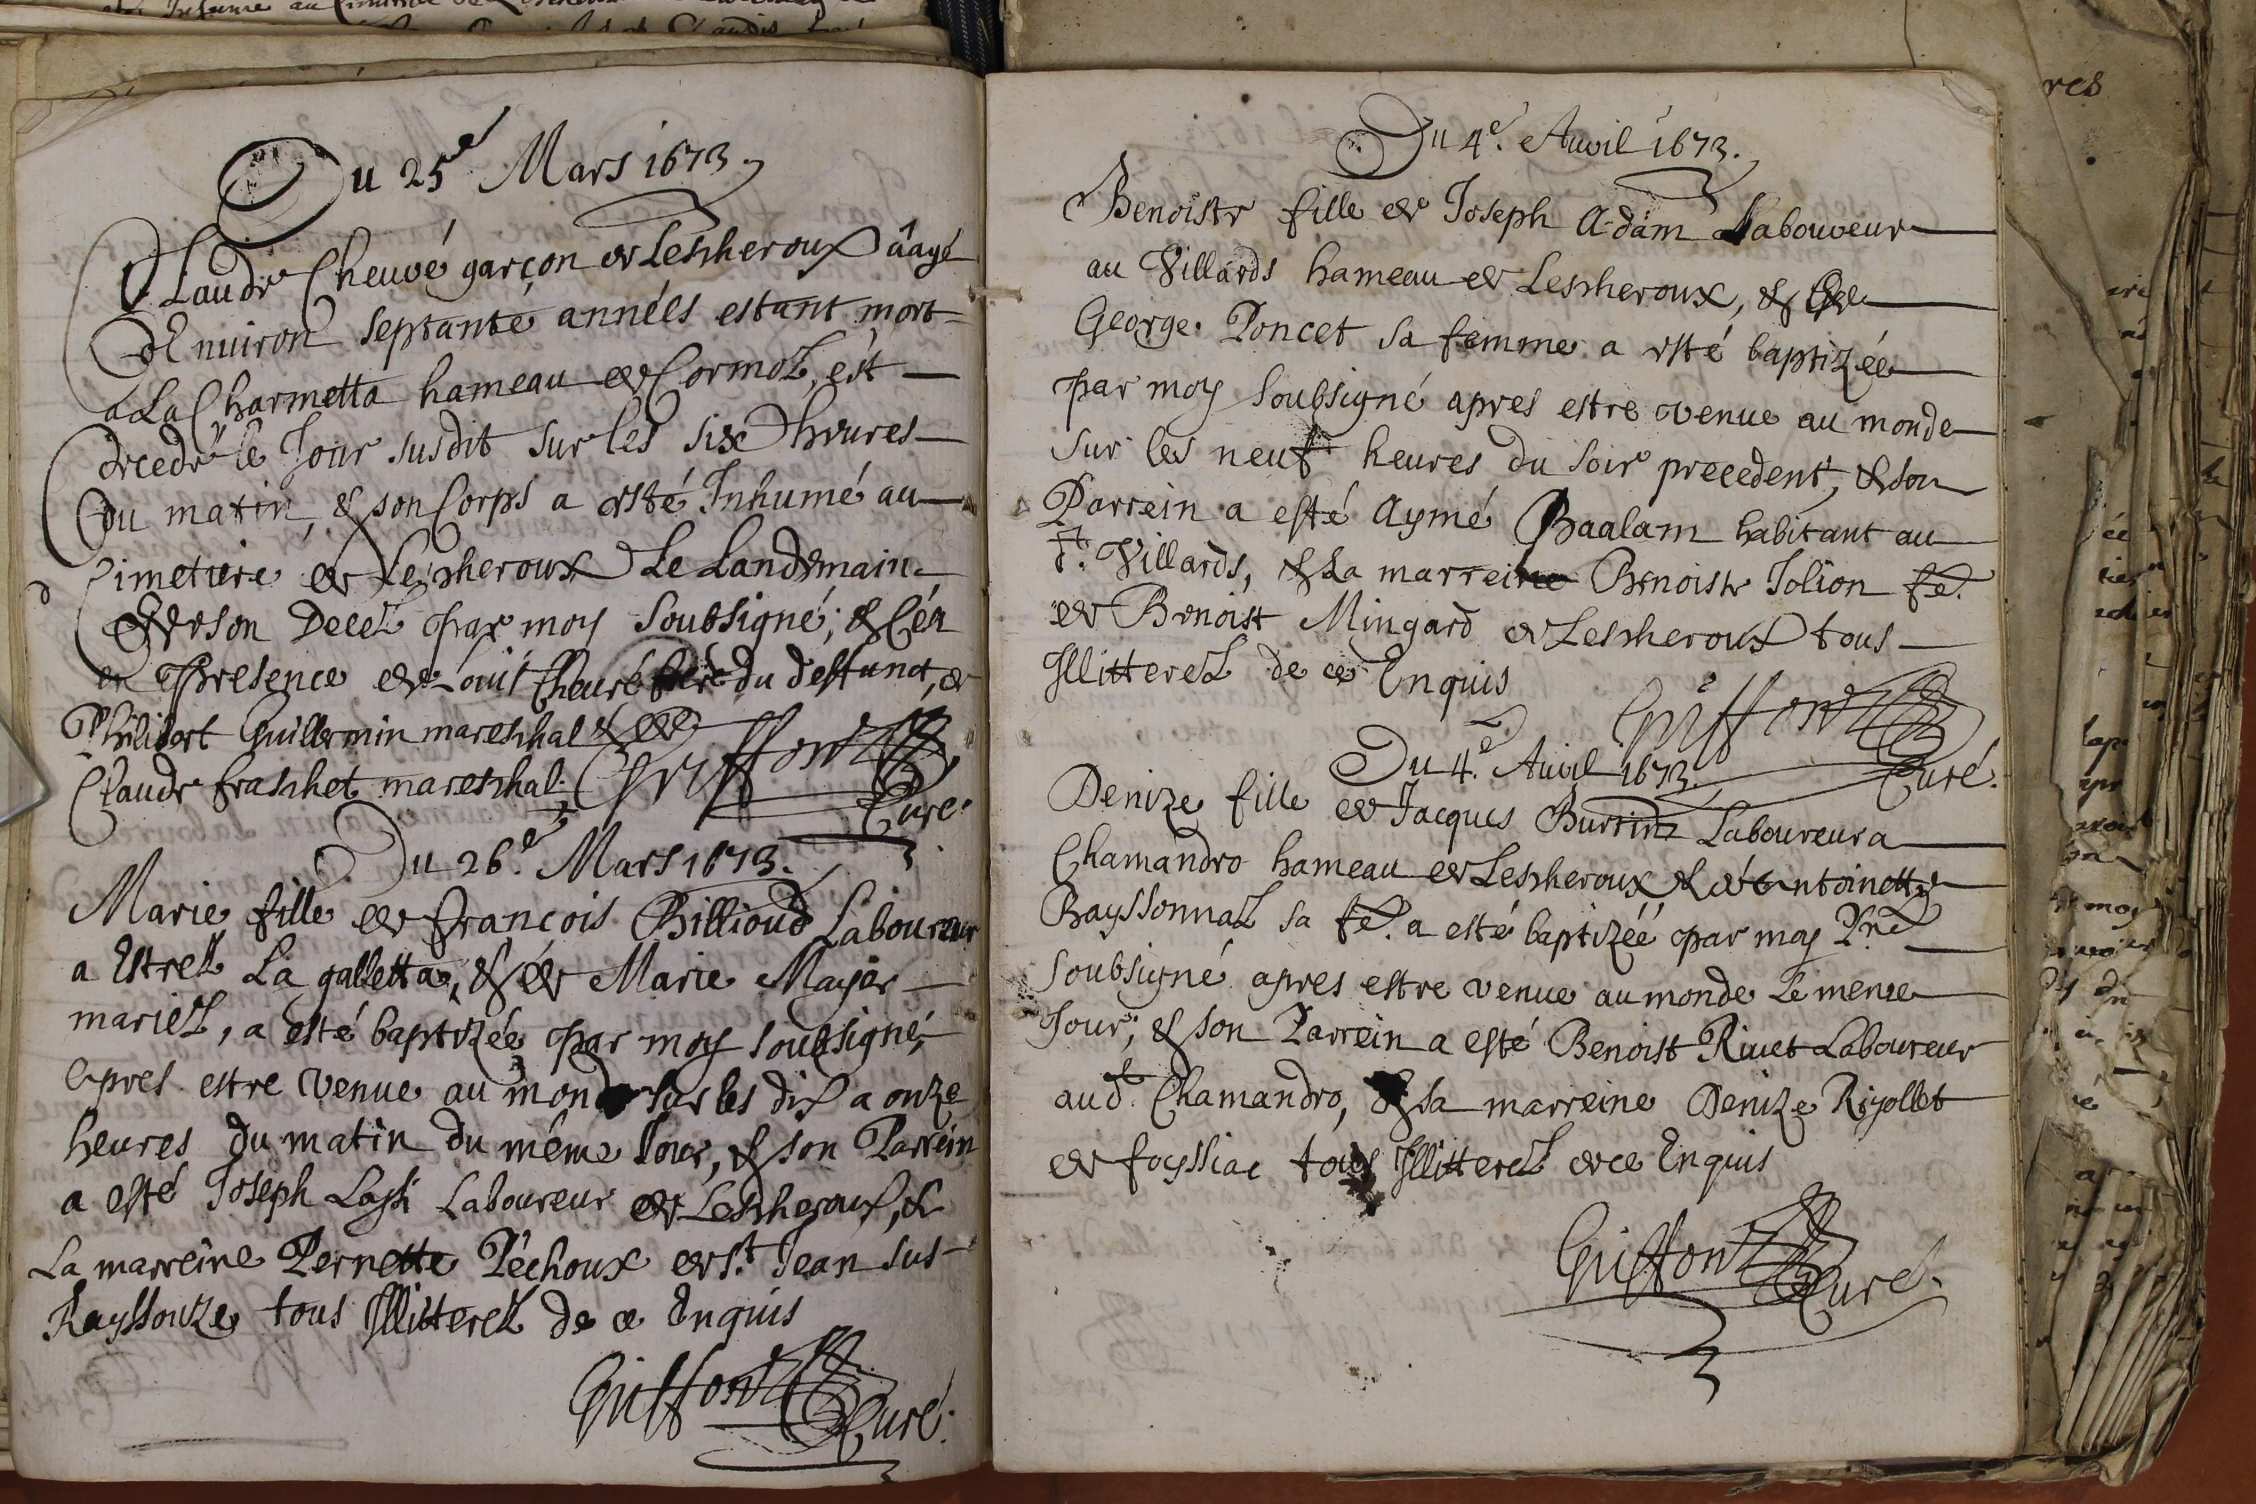 Du 25e Mars 1673.
Claude Cheuvé garçon de Lescheroux âagé
d'Enuiron septante années estant mort
a La Charmetta hameau de Cormoz, est
decedé le Jour susdit sur les six heures
du matin, & son Corps a esté Inhumé au
Cimetiere de Lescheroux Le Landemain
de son Decez par moy Soubsigné, & Céa
en Presence de Louis Cheuré frere du deffunct, &
Philibert Guillermin mareschal &
Claude fraschet mareschal. Griffon
Curé.
Du 26e. Mars 1673.
Marie fille de François Billioud Laboureur
a Estrez La galletta, & de Marie Mayer
mariez, a esté baptizée par moy soubsigné,
apres estre venue au monde sur les dix a onze
heures du matin du même Jour, & son Parrein
a esté Joseph Layli Laboureur de Lescheroux, &
La marreine Pernette Péchoux de St. Jean sus
Rayssouze tous Illitterez de ce Enquis
Griffon
Curé.
Du 4e. Auvil 1673.
Benoiste fille de Joseph Adam Laboureur
au Villards hameau de Lescheroux, & de
George Poncet sa femme a esté baptizée
par moy Soubsigné apres estre venue au monde
sur les neuf heures du soir precedent, & son
Parrein a esté Aymé Baalam habitant au
dt. Villards, & La marreine Benoiste Jolion fe.
de Benoist Mingard de Lescheroux tous
Illitterez de ce Enquis
Griffon
Curé.
Du 4e. Auvil 1673.
Denize fille de Jacques Burrin Laboureur a
Chamandro hameau de Lescheroux & d'Antoinette
Bayssonnaz sa fe. a esté baptizéé par moy Pre
soubsigné apres estre venue au monde Le meme
Jour; & son Parrein a esté Benoist Riuet Laboureur
aud. Chamandro, & sa marreine Denize Rigollet
de foyssiac tous Illitterez de ce Enquis
Griffon
Curé.
res